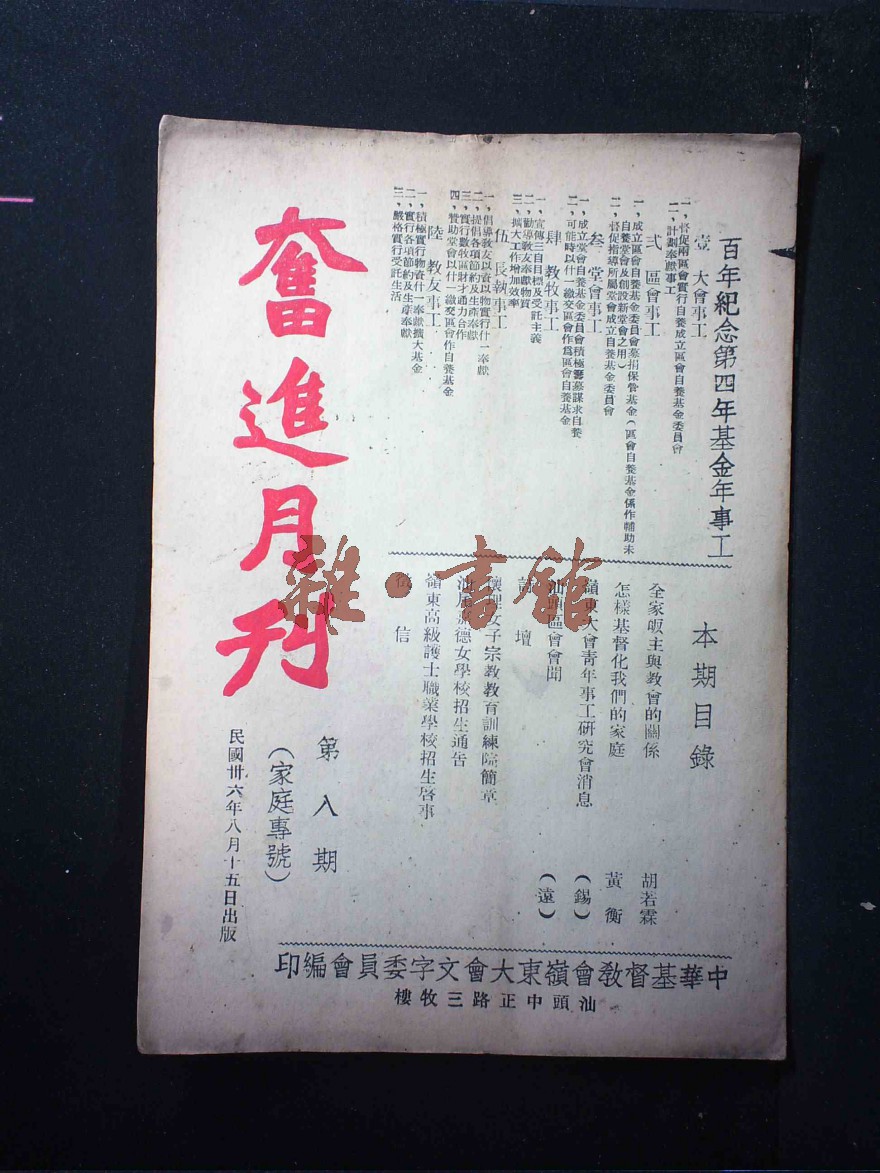 百年紀念第四年基金年事工
壹 大會事工
一，督促兩區會實行自養成立區會自養基金委員會
二，計劃奉獻事工
弍 區會事工
一，成立區會自養基金委員會募捐保管基金（區會自養基金係作輔助未
自養堂會及創設新堂會之用）
二，督促指導所屬堂會成立自養基金委員會
叁 堂會事工
一，成立堂會自養基金委員會積極籌募謀求自養
二，可能時以什一繳交區會作爲區會自養基金
肆 教牧事工
一，宣傳三自目標及受託主義
二，勸導教友奉獻物質
三，擴大工作增加效率
伍 長執事工
一，倡導教友以資以物實行什一奉獻
二，提倡各項節約及生產奉獻
三，實行數牧區財才通力合作
四，贊助堂會以什一繳交區會作自養基金
陸 教友事工
一，積極實行物資什一奉獻擴大基金
二，實行各項節約及生產奉獻
三，嚴格實行受託生活
本期目錄
全家皈主與教會的關係 胡若霖
怎樣基督化我們的家庭 黃衡
嶺東大會青年事工研究會消息 （錫）
汕頭區會會聞 （遠）
壇
女子宗教教育訓練院簡章
德女學校招生通告
嶺東高級護士職業學校招生啓事
信
奮進月刊
第八期
（家庭專號）
民國卅六年八月十五日出版
中華基督教會嶺東大會文字委員會編印
汕頭中正路三牧樓
雜·書館